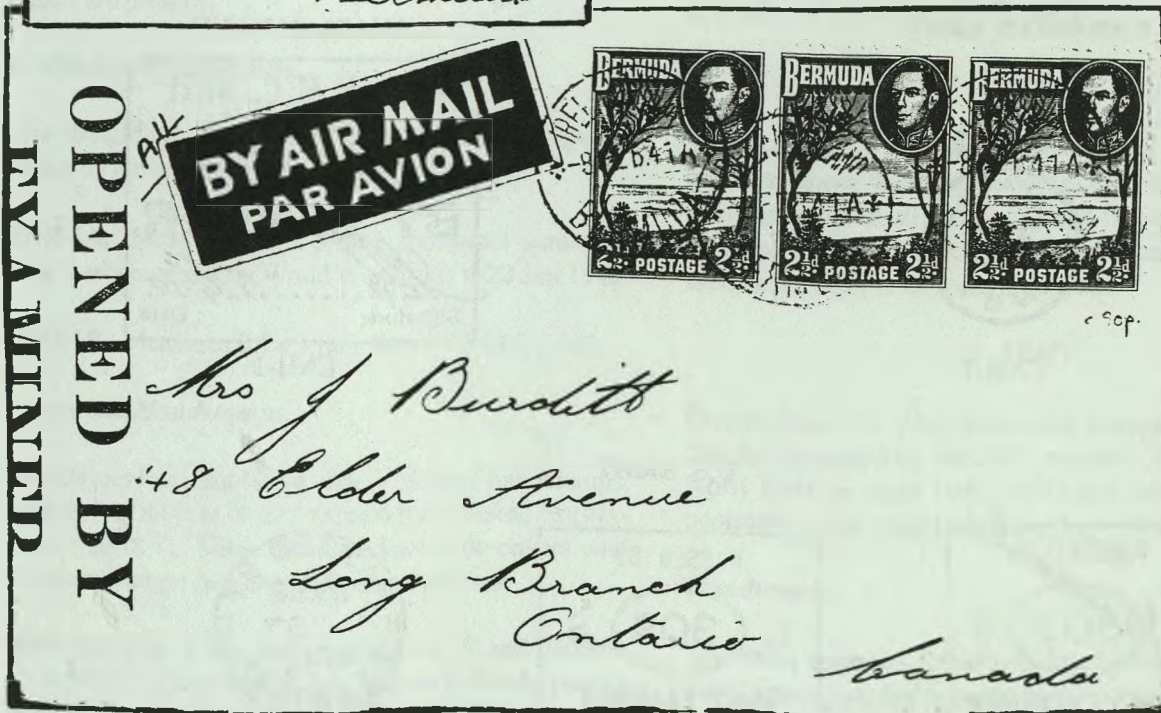 OPENED BY
EXAMINER
AIR
BY AIR MAIL
PAR AVION
BERMUDA
2½d POSTAGE 2½d
BERMUDA
2½d POSTAGE 2½d
BERMUDA
2½d POSTAGE 2½d
Mrs J Burditt
48 Elder Avenue
Long Branch
Ontario
Canada